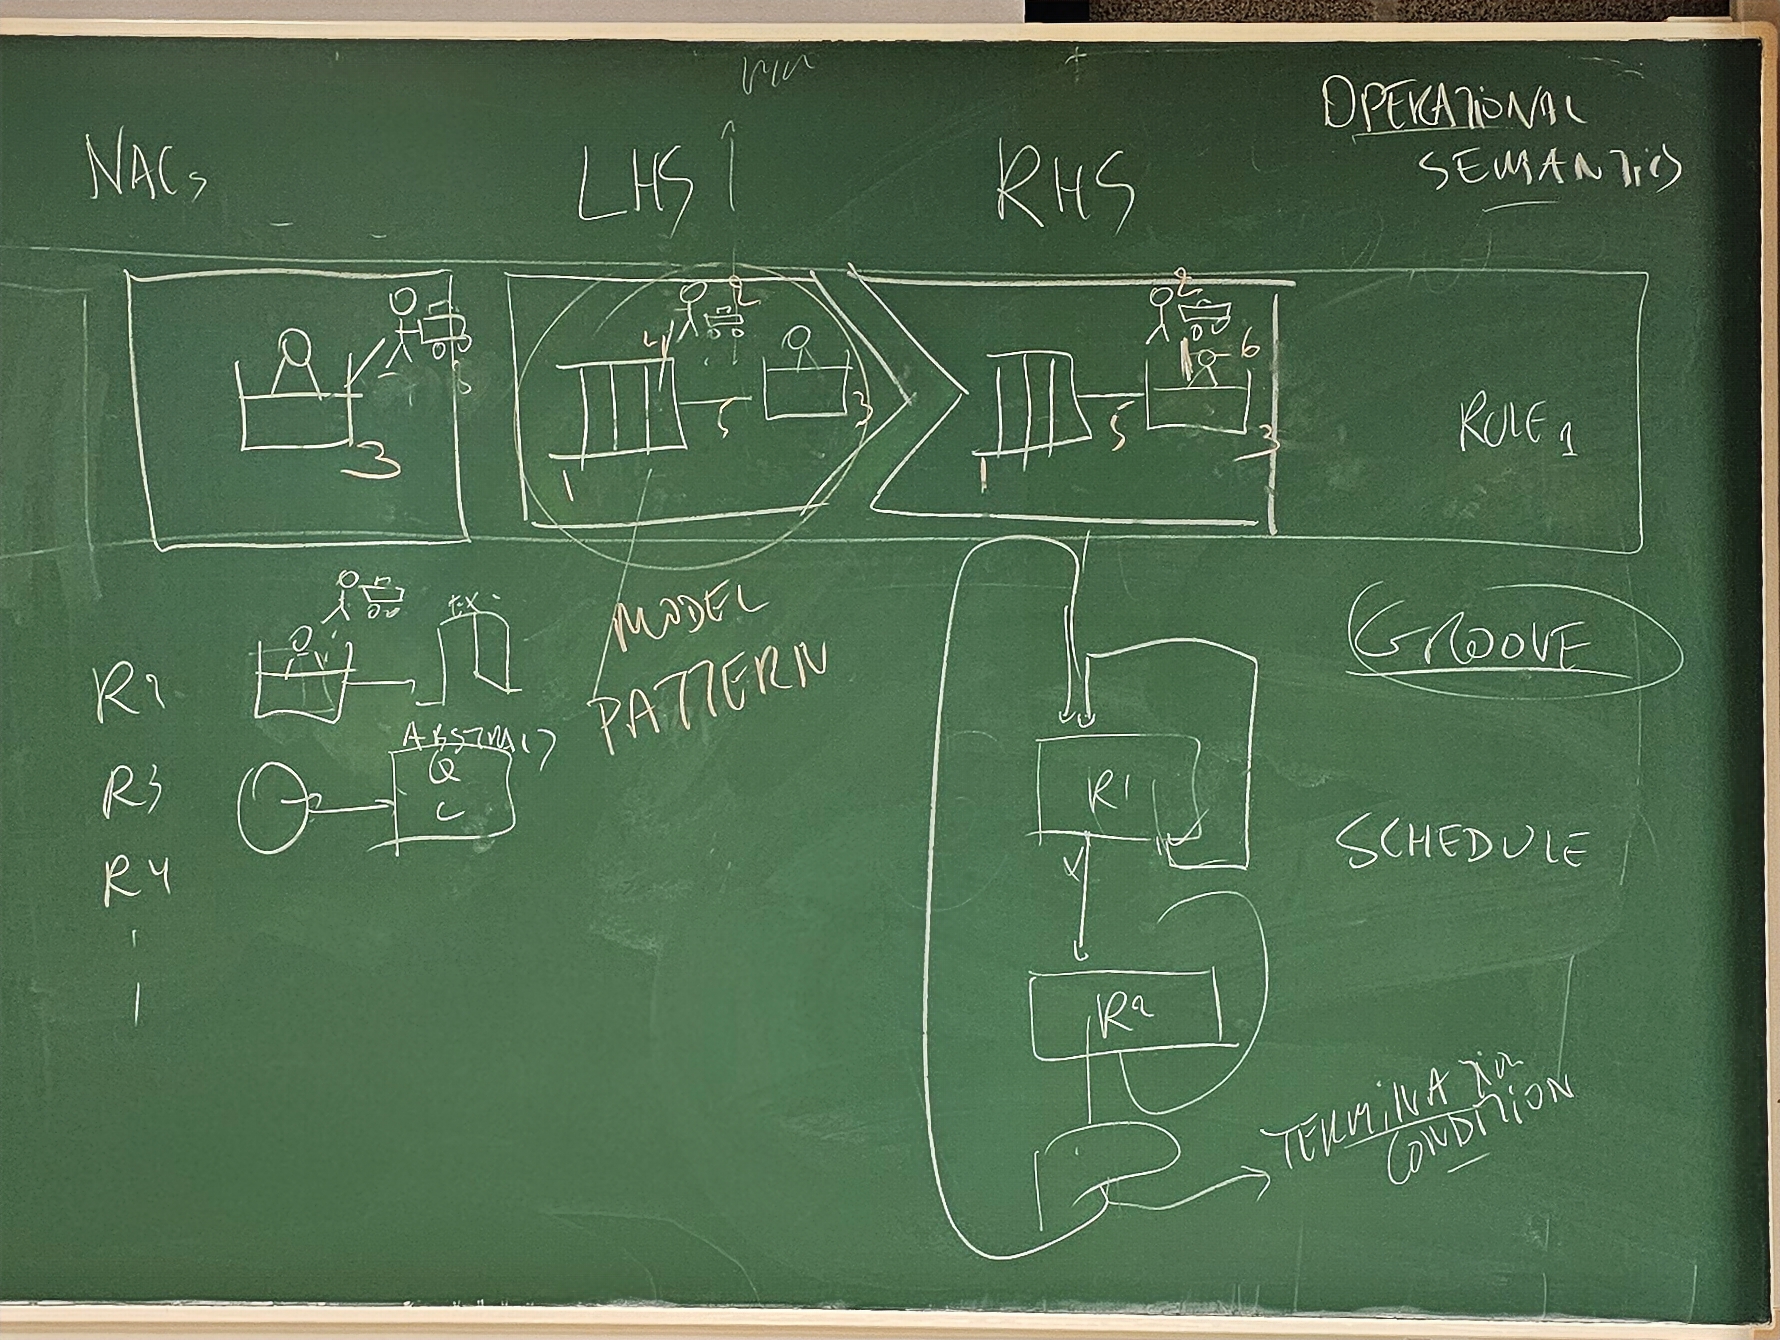 OPERATIONAL
SEMANTICS
NACs
LHS
RHS
3
1
4
2
5
3
1
5
2
6
3
RULE 1
MODEL
PATTERN
GROOVE
R2
EX.
R3
ABSTRACT
Q
C
R4
R1
SCHEDULE
R2
TERMINATION
CONDITION